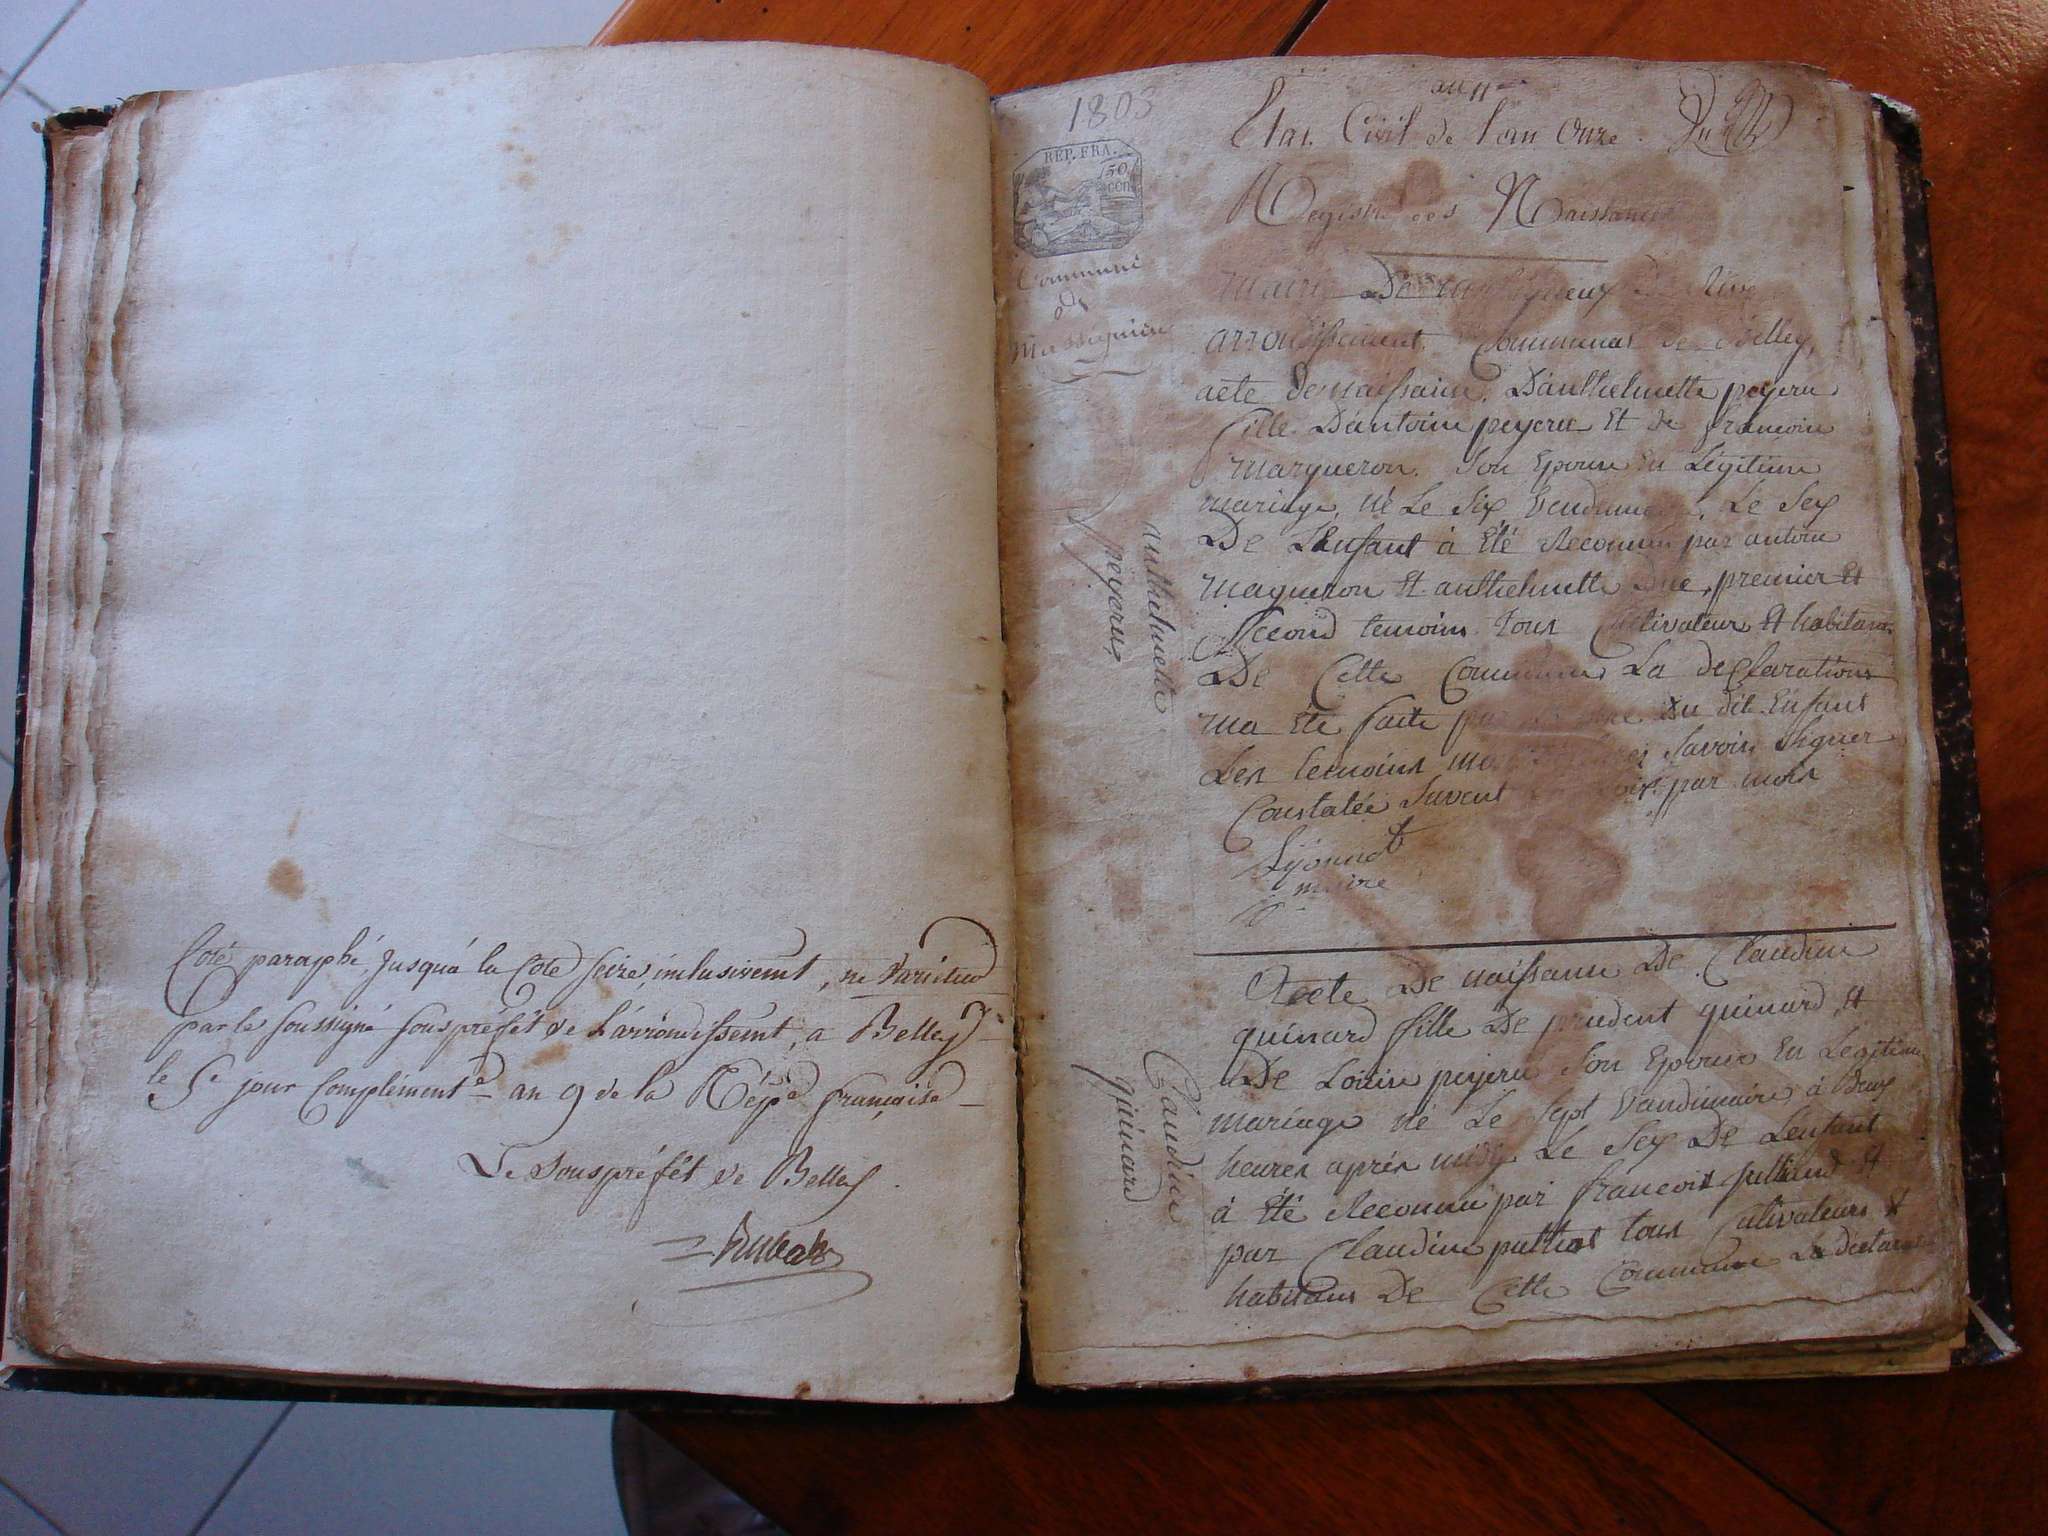 Coté paraphé, jusqu'a la Cote seize, inclusivemt, ne varietur
par le soussigné souspréfêt de l'arrondissemt, a Belley
le 5e jour Complémente an 9 de la Répe française
Le Souspréfêt de Belley.
1803
an 11
Etat Civil de l'an Onze.
Registre des Naissances
REP. FRA.
50
CEN
Commune
de
Massignieu
Mairie De Massignieux De Rive
arrondissement Communal de Belley,
acte de naissance D'anthelmette peyeru
fille D'antoine peyeru Et de francoise
Marqueron. Son Epouse En Légitime
mariage, né Le Six Vendimiaire, Le Sex
De L'Enfant à été Reconnu par antoine
Maqueron Et anthelmette Due, premier Et
Second temoins tous Cultivateur Et habitans
De Cette Commune La declarations
ma Eté faite par Le pere Du dit Enfant
Les temoins mon Savoir Signer
Constatée Suvent par mois
Lyonnet
maire
anthelmette
peyeru
Acte De naissance De Claudine
quinard fille De prudent quinard, Et
De Louise peyeru Son Epouse En Légitime
mariage né Le sept Vandimiaire, à Deux
heures après midy Le Sex De Lenfant
à Eté Reconnu par francois Et
par Claudine tous Cultivateurs Et
habitans De Cette Commune La declaration
Claudine
quinard